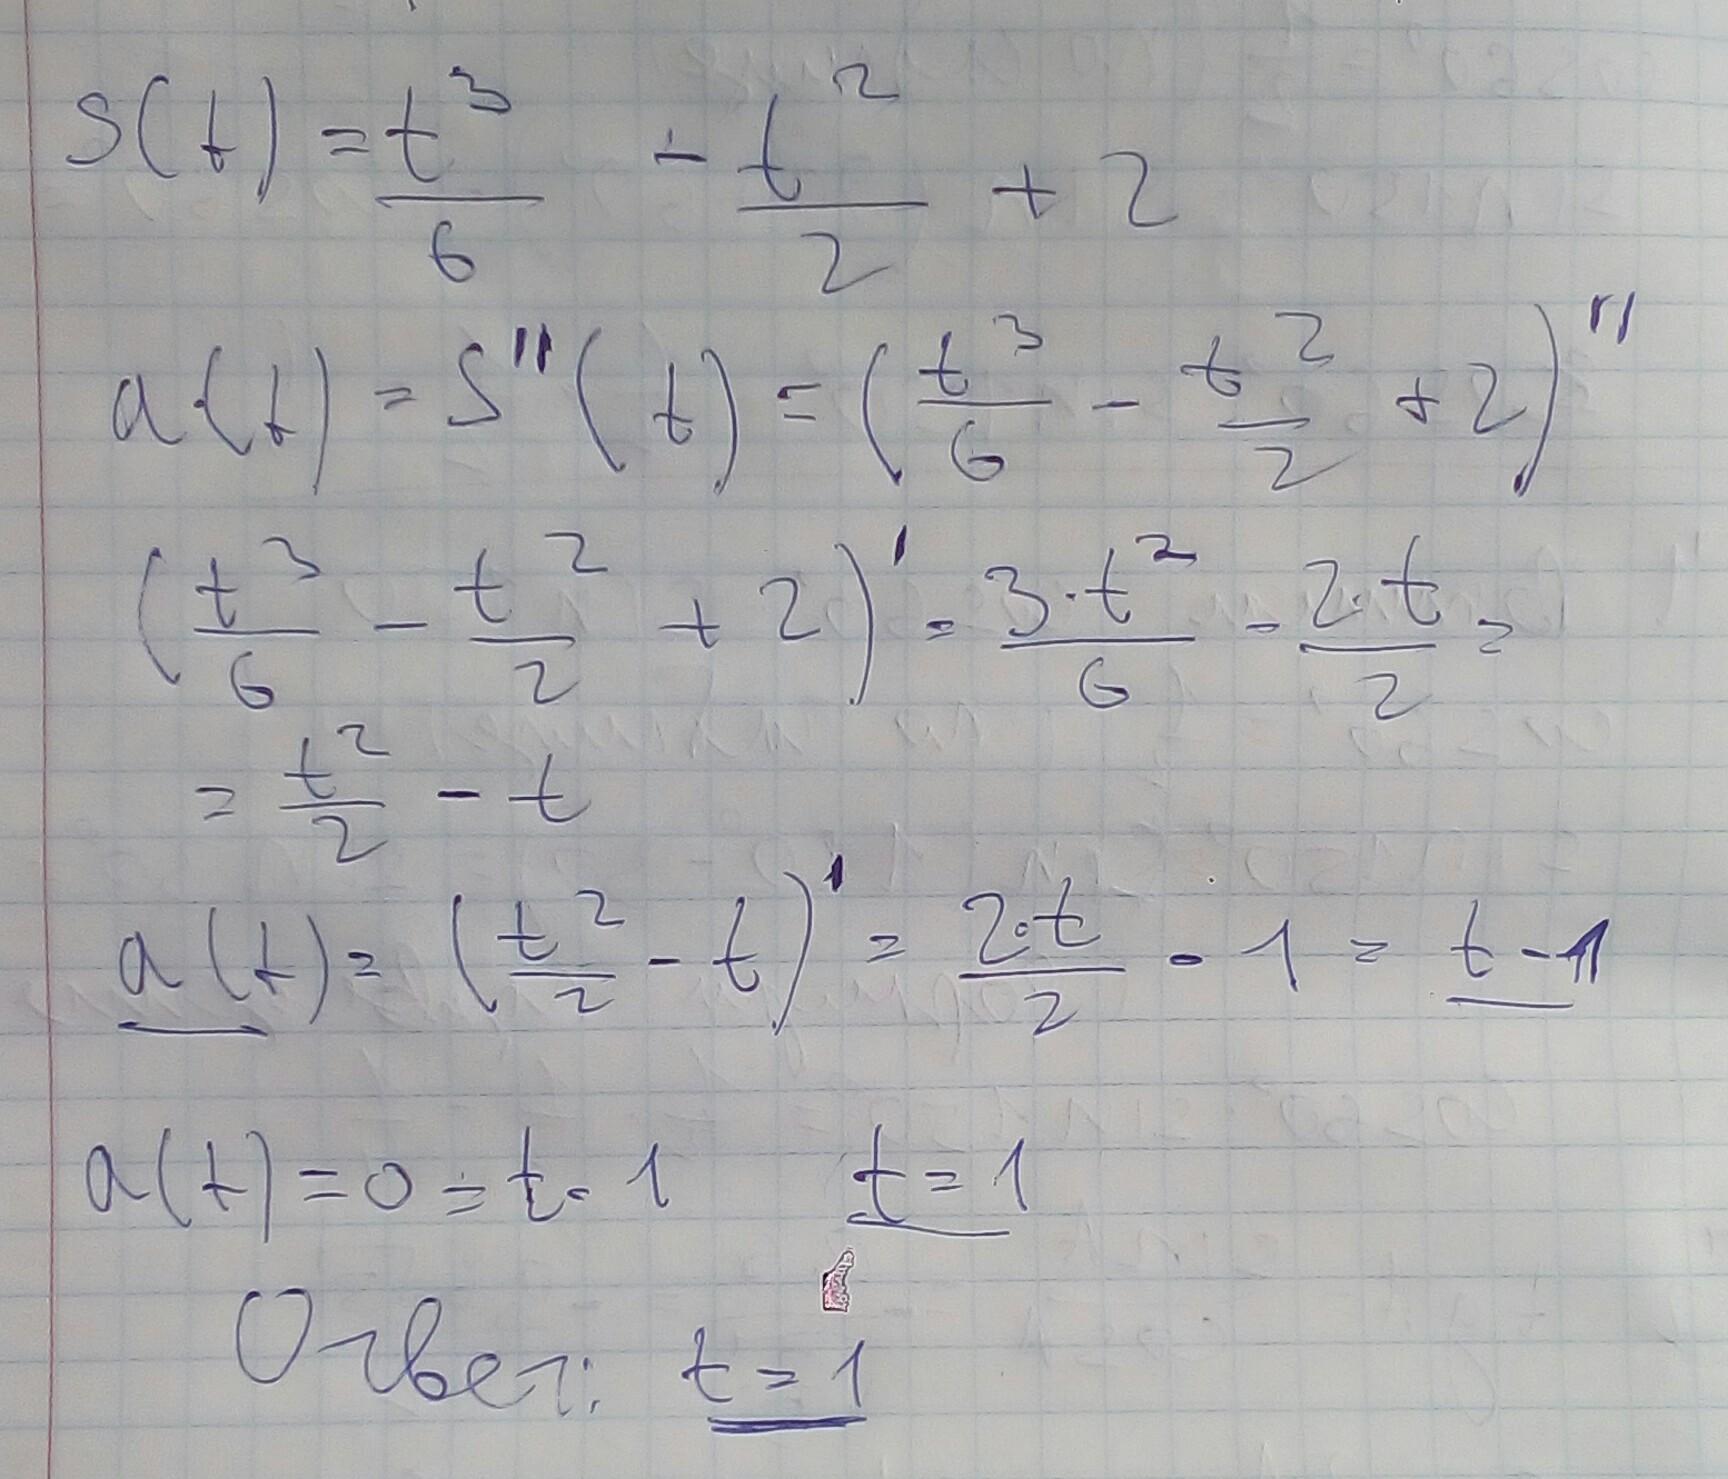 S(t) = t³/6 - t²/2 + 2
a(t) = S''(t) = (t³/6 - t²/2 + 2)''
(t³/6 - t²/2 + 2)' = 3·t²/6 - 2·t/2 =
= t²/2 - t
a(t) = (t²/2 - t)' = 2·t/2 - 1 = t - 1
a(t) = 0 = t - 1 t = 1
Ответ: t = 1